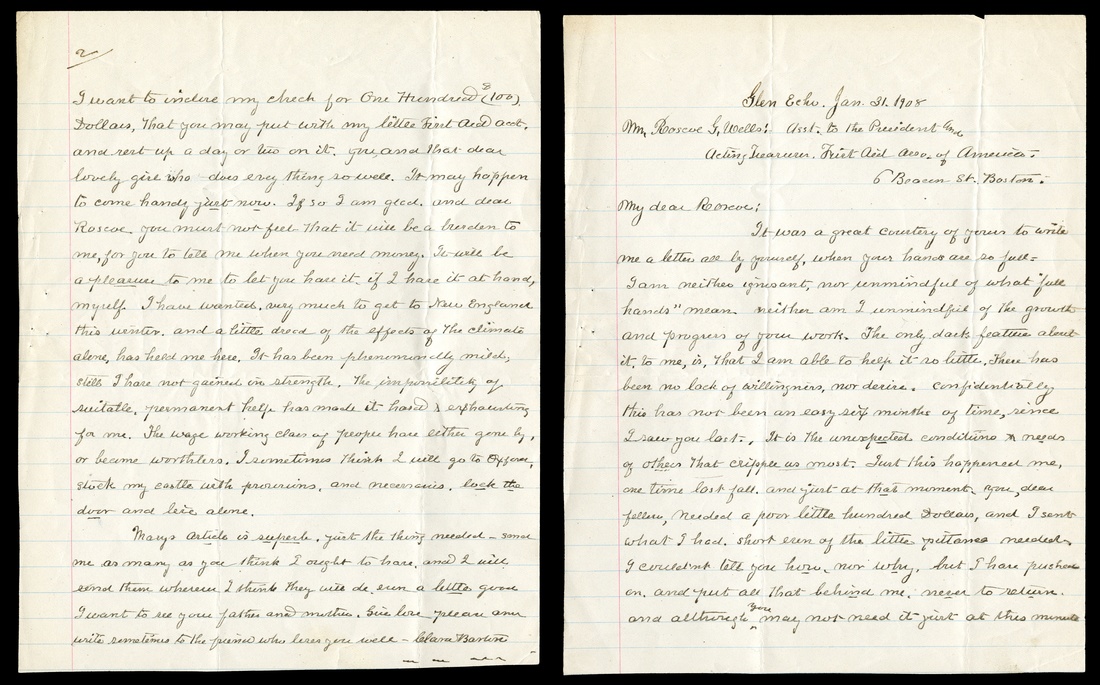 Glen Echo. Jan. 31. 1908
Mr. Roscoe G. Wells: Asst. to the President and
Acting Treasurer. First Aid Asso. of America.
6 Beacon St. Boston.
My dear Roscoe:
It was a great courtesy of yours to write
me a letter all by yourself, when your hands are so full-
I am neither ignorant, nor unmindful of what "full
hands" mean. neither am I unmindful of the growth
and progress of your work. The only dark feature about
it, to me, is, that I am able to help it so little, There has
been no lack of willingness, nor desire. Confidentially
this has not been an easy six months of time, since
I saw you last., It is the unexpected conditions & needs
of others that cripple us most. Just this happened me,
one time last fall. and just at that moment. you, dear
fellow, needed a poor little hundred Dollars, and I sent
what I had. short even of the little pittance needed.
I couldn't tell you how. nor why, but I have pushed
on, and put all that behind me. never to return.
and although you may not need it just at this minute
2
I want to inclose my check for One Hundred (100)
Dollars, that you may put with my little First Aid acct.
and rest up a day or two on it. you, and that dear
lovely girl who does every thing so well. It may happen
to come handy just now. If so I am glad. and dear
Roscoe you must not feel that it will be a burden to
me, for you to tell me when you need money. It will be
a pleasure to me to let you have it, if I have it at hand,
myself. I have wanted, very much to get to New England
this winter. and a little dread of the effects of the climate
alone, has held me here, It has been phenominally mild,
still I have not gained in strength. The impossibility of
suitable, permanent help has made it hard & exhausting
for me. The wage working class of people have either gone by,
or become worthless. I sometimes think I will go to Oxford,
stock my castle with provisions, and necessaries. lock the
door and live alone.
Marys article is superb. just the thing needed - send
me as many as you think I ought to have, and I will
send them wherever I think they will do even a little good
I want to see your father and mother. Give love please and
write sometimes to the friend who loves you well - Clara Barton